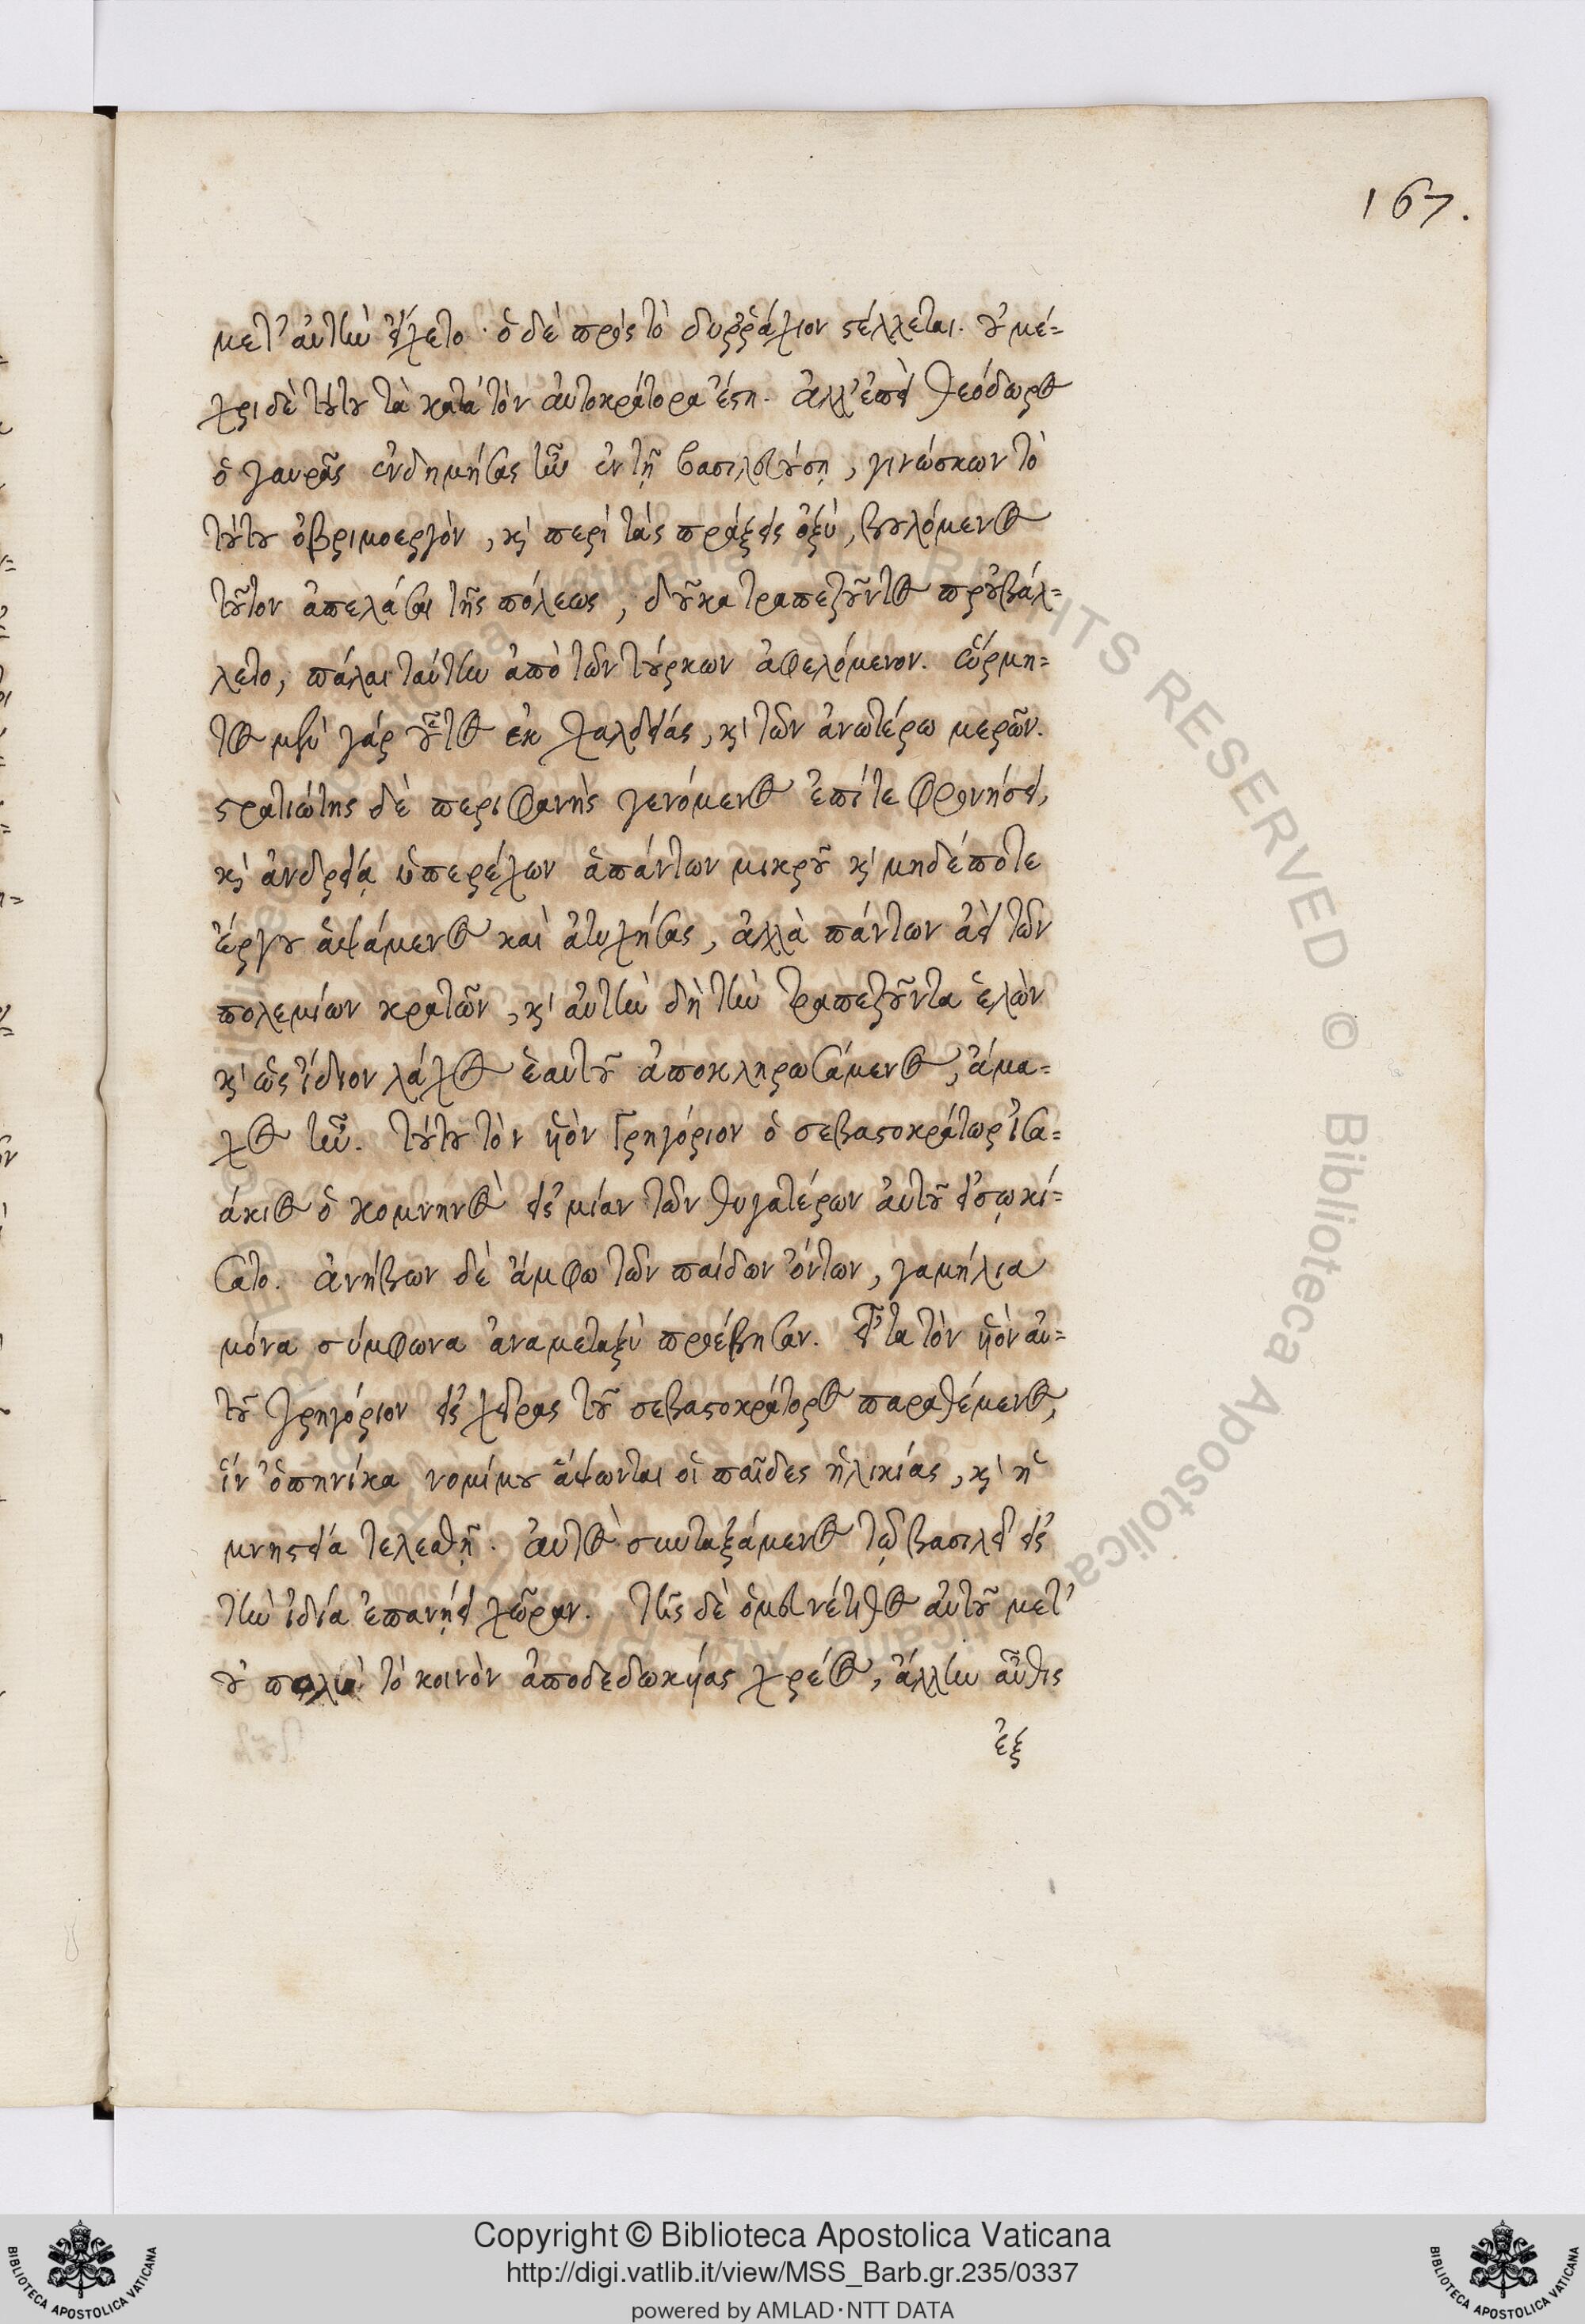 167.
μετ' αὐτὴν εἴχετο· ὁ δὲ πρὸς τὸ δυῤῥάχιον στέλλεται. οὐ μέ=
χρι δὲ τούτου τὰ κατὰ τὸν αὐτοκράτορα ἔστη. ἀλλ' ἐπεὶ θεόδωρος
ὁ γαυρᾶς ἐνδημήσας ἦν ἐν τῇ βασιλευούσῃ, γινώσκων τὸ
τούτου ὀβριμοεργὸν, καὶ περὶ τὰς πράξεις ὀξὺ, βουλόμενος
τοῦτον ἀπελάσαι τῆς πόλεως, δοῦκα τραπεζοῦντος προὐβάλ=
λετο, πάλαι ταύτην ἀπὸ τῶν τούρκων ἀφελόμενον. ὥρμη=
το μὲν γὰρ οὗτος ἐκ χαλδείας, καὶ τῶν ἀνωτέρω μερῶν.
στρατιώτης δὲ περιφανὴς γενόμενος ἐπί τε φρονήσει,
καὶ ἀνδρείᾳ ὑπερέχων ἁπάντων μικροῦ καὶ μηδέποτε
ἔργου ἁψάμενος καὶ ἀτυχήσας, ἀλλὰ πάντων ἀεὶ τῶν
πολεμίων κρατῶν, καὶ αὐτὴν δὴ τὴν τραπεζοῦντα ἑλὼν
καὶ ὡς ἴδιον λάχος ἑαυτοῦ ἀποκληρωσάμενος, ἄμα=
χος ἦν. τούτου τὸν υἱὸν Γρηγόριον ὁ σεβαστοκράτωρ ἰσα=
άκιος ὁ κομνηνὸς εἰς μίαν τῶν θυγατέρων αὐτοῦ εἰσῳκί=
σατο. ἀνήβων δὲ ἄμφω τῶν παίδων ὄντων, γαμήλια
μόνα σύμφωνα ἀναμεταξὺ προέβησαν. εἶτα τὸν υἱὸν αὐ=
τοῦ γρηγόριον εἰς χεῖρας τοῦ σεβαστοκράτορος παραθέμενος,
ἵν' ὁπηνίκα νομίμου ἅψωνται οἱ παῖδες ἡλικίας, καὶ ἡ
μνηστεία τελεσθῇ. αὐτὸς συνταξάμενος τῷ βασιλεῖ εἰς
τὴν ἰδία ἐπανῄει χῶραν. τῆς δὲ ὁμευνέτιδος αὐτοῦ μετ'
οὐ πολὺ τὸ κοινὸν ἀποδεδωκυίας χρέος, ἄλλην αὖθις
ἐξ
Copyright © Biblioteca Apostolica Vaticana
http://digi.vatlib.it/view/MSS_Barb.gr.235/0337
powered by AMLAD·NTT DATA